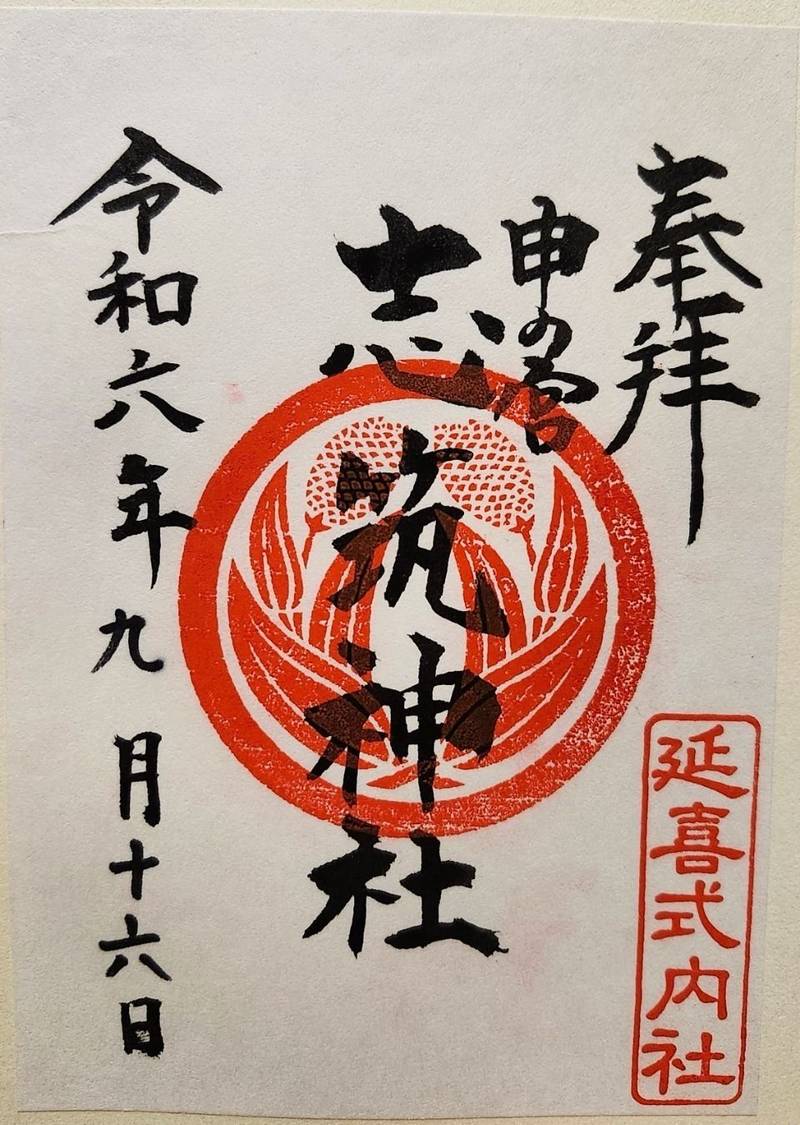 奉拝
申の宮
志筑神社
令和六年九月十六日
延喜式内社